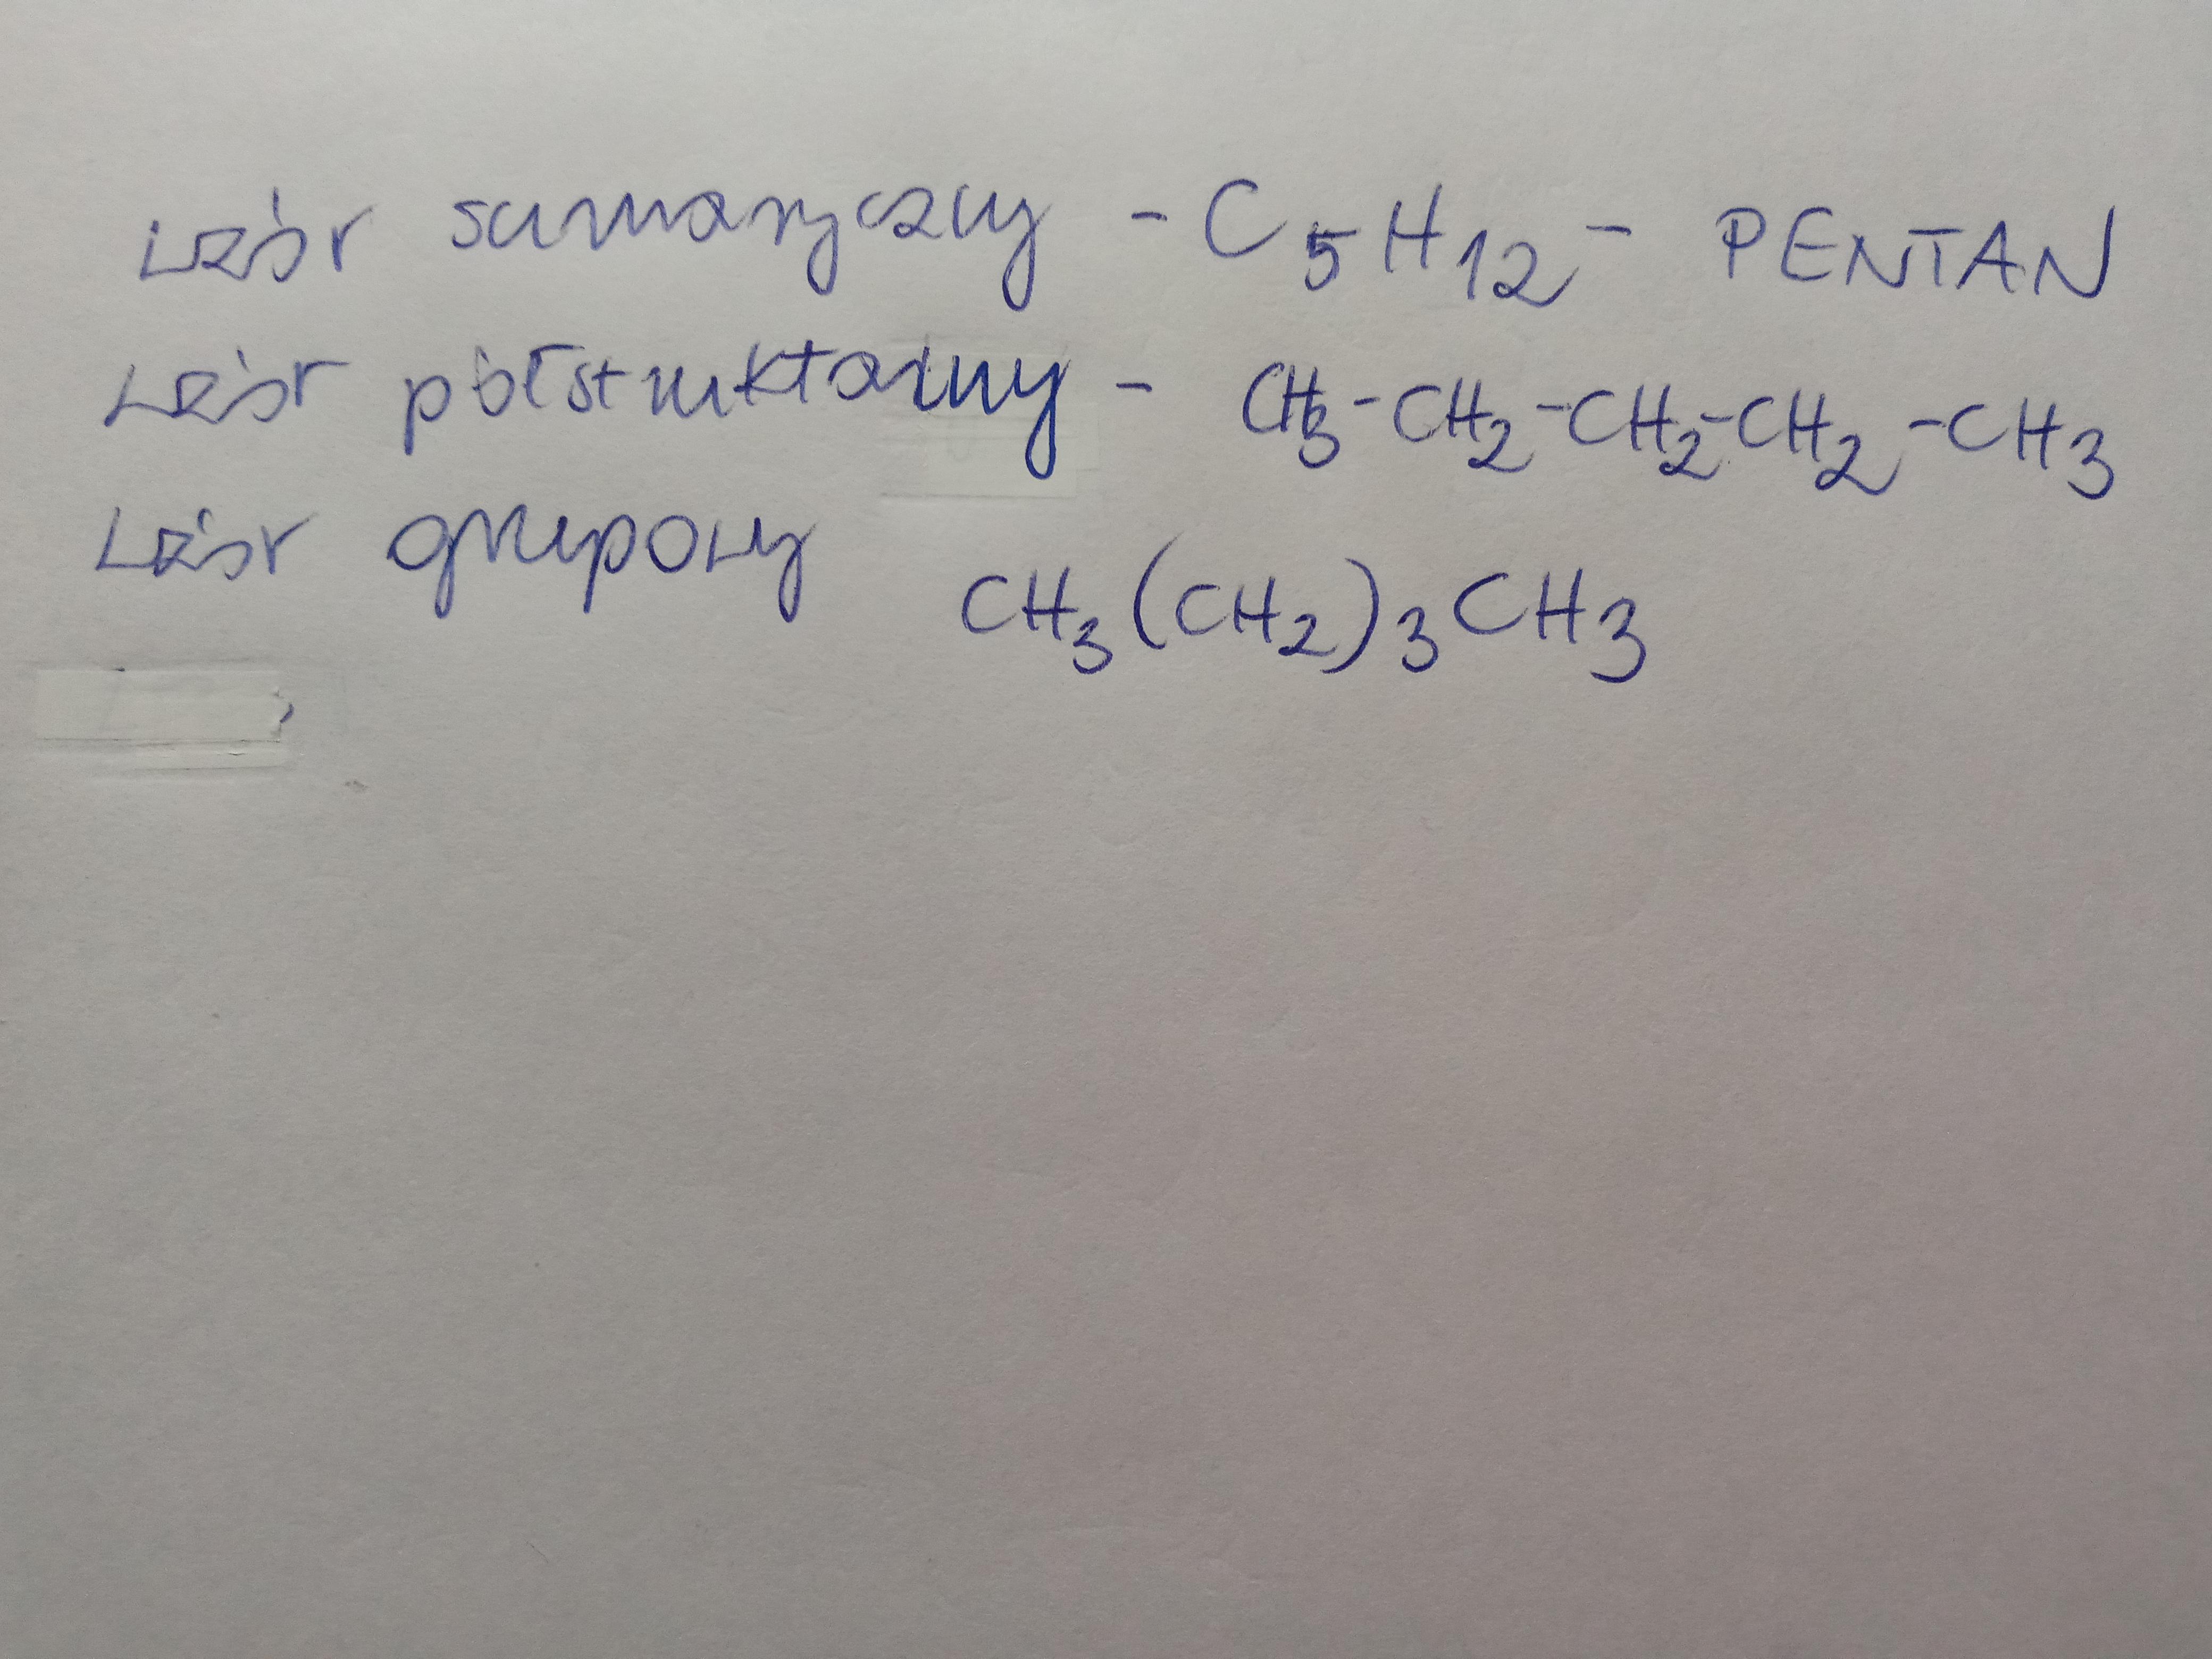 wzór sumaryczny - C5H12 - PENTAN
wzór półstrukturalny - CH3-CH2-CH2-CH2-CH3
wzór grupowy CH3(CH2)3CH3